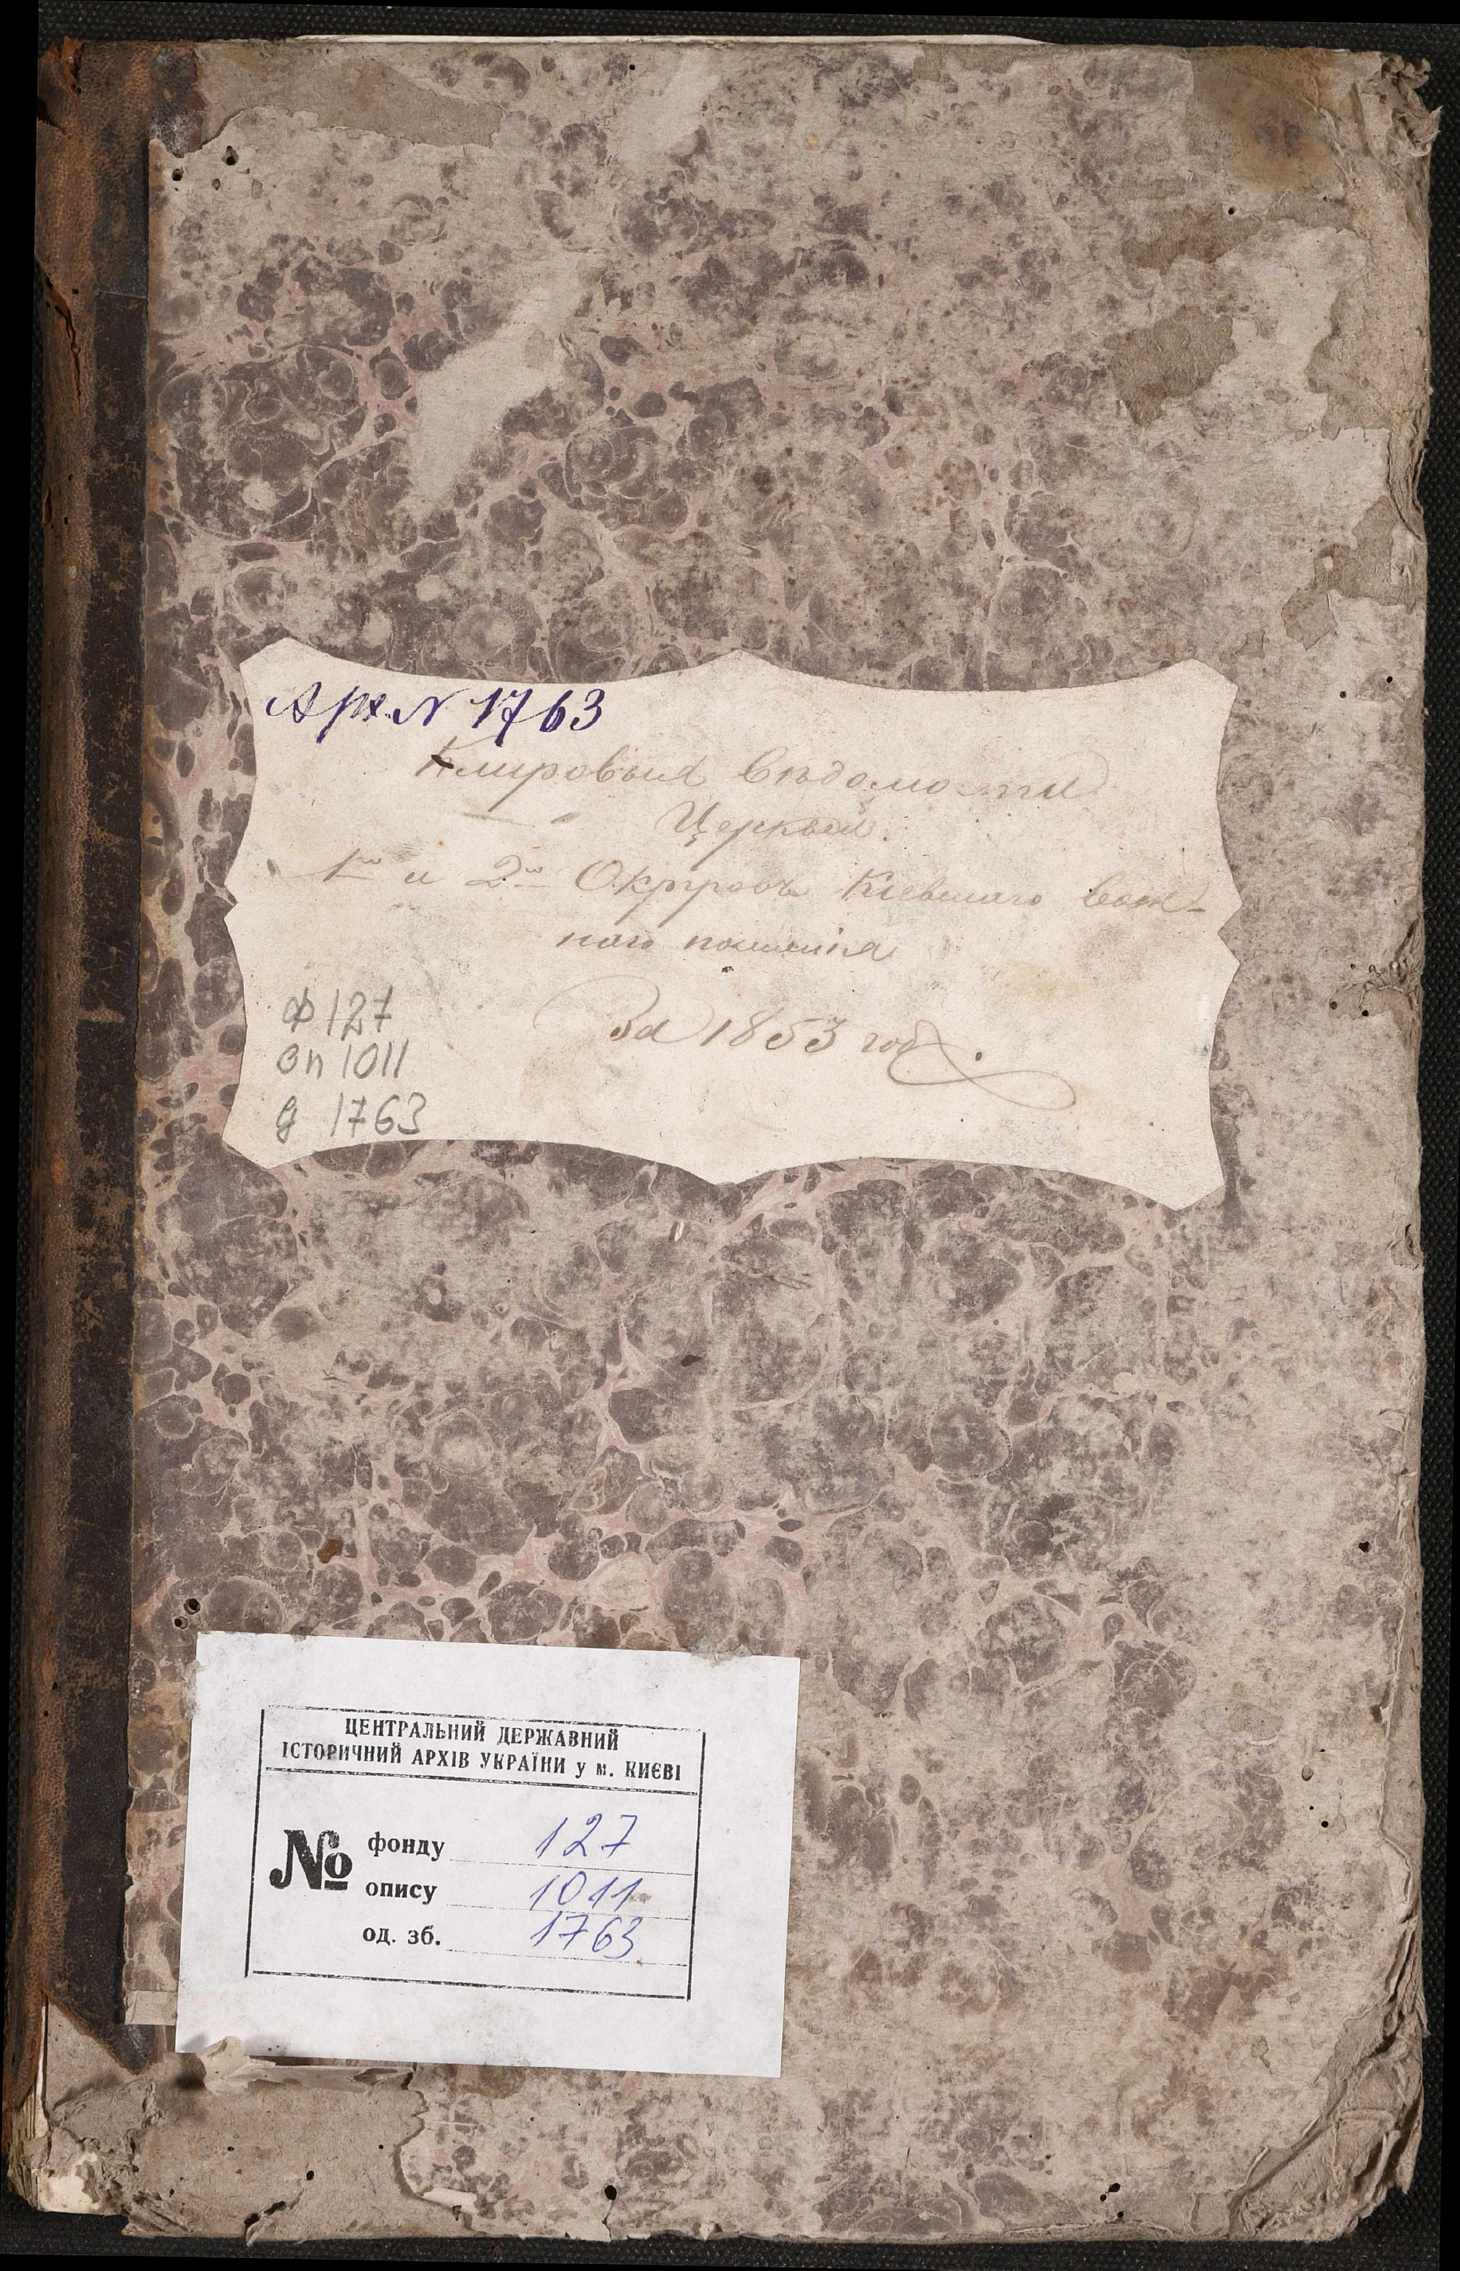 Арх. N 1763
Клировыя вѣдомости
Церквей
1го и 2го Округовъ Кіевскаго воен-
наго поселенія
За 1853 годъ.
Ф 127
оп 1011
д 1763
ЦЕНТРАЛЬНИЙ ДЕРЖАВНИЙ
ІСТОРИЧНИЙ АРХІВ УКРАЇНИ у м. КИЄВІ
№ фонду 127
опису 1011
од. зб. 1763